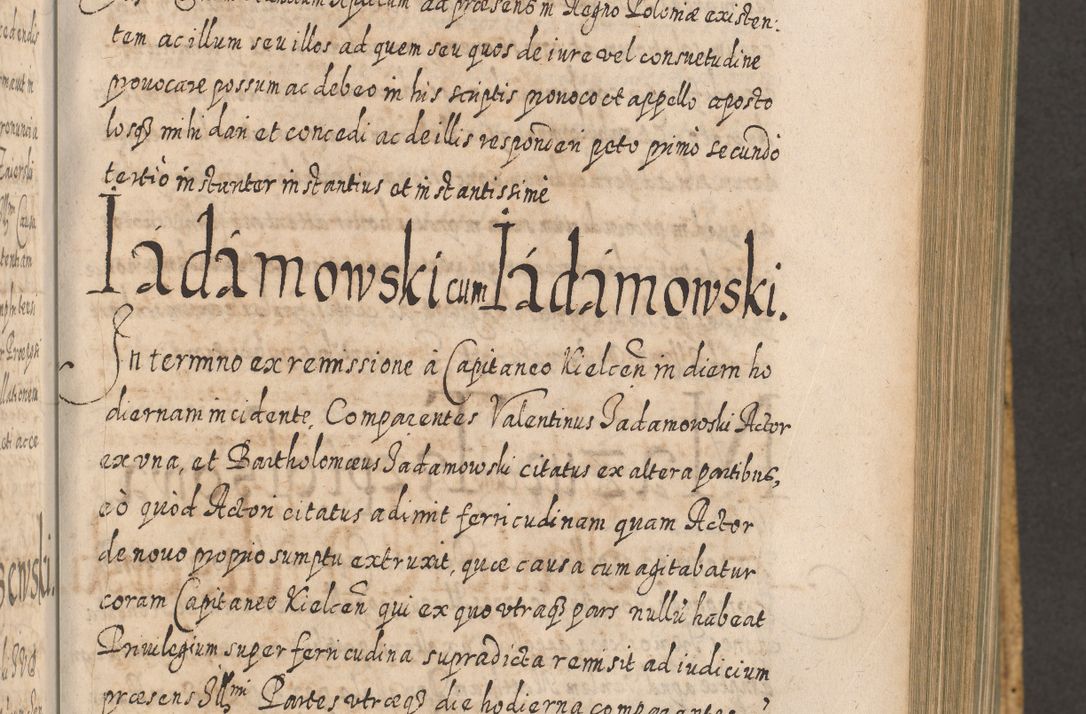 ad præsens in Regno Poloniæ existen:
tem ac illum seu illos ad quem seu quos de iure vel consuetudine
prouocare possum ac debeo in his scriptis prouoco et appello aposto
losq3 mihi dari et concedi ac de illis responderi peto primò secundò
tertiò instanter instantius et instantissimè
Iádámowski cum Iádámowski.
In termino ex remissione à Capitaneo Kielceñ in diem ho
diernam incidente, Comparentes Valentinus Jadamowski Actor
ex vna, et Bartholomæus Jadamowski citatus ex altera partibus,
eò quòd Actori citatus adimit ferricudinam quam Actor
de nouo proprio sumptu extruxit, quæ causa cum agitabatur
coram Capitaneo Kielceñ qui ex quo vtraq3 pars nullũ habeat
Priuilegium super ferricudina supradicta remisit ad iudicium
præsens Illmi Partes vtræq3 die hodierna comparantes